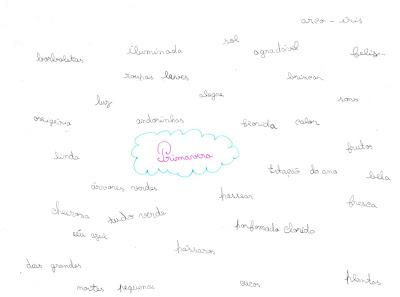 arco-íris
sol
borboletas iluminada agradável feliz
roupas leves brincar
luz alegre sons
andorinhas florida calor
Primavera
frutos
linda Estação do ano bela
árvores verdes passear fresca
cheirosa tudo verde
céu azul perfumado clorido
pássaros
dias grandes
noites pequenas plantas